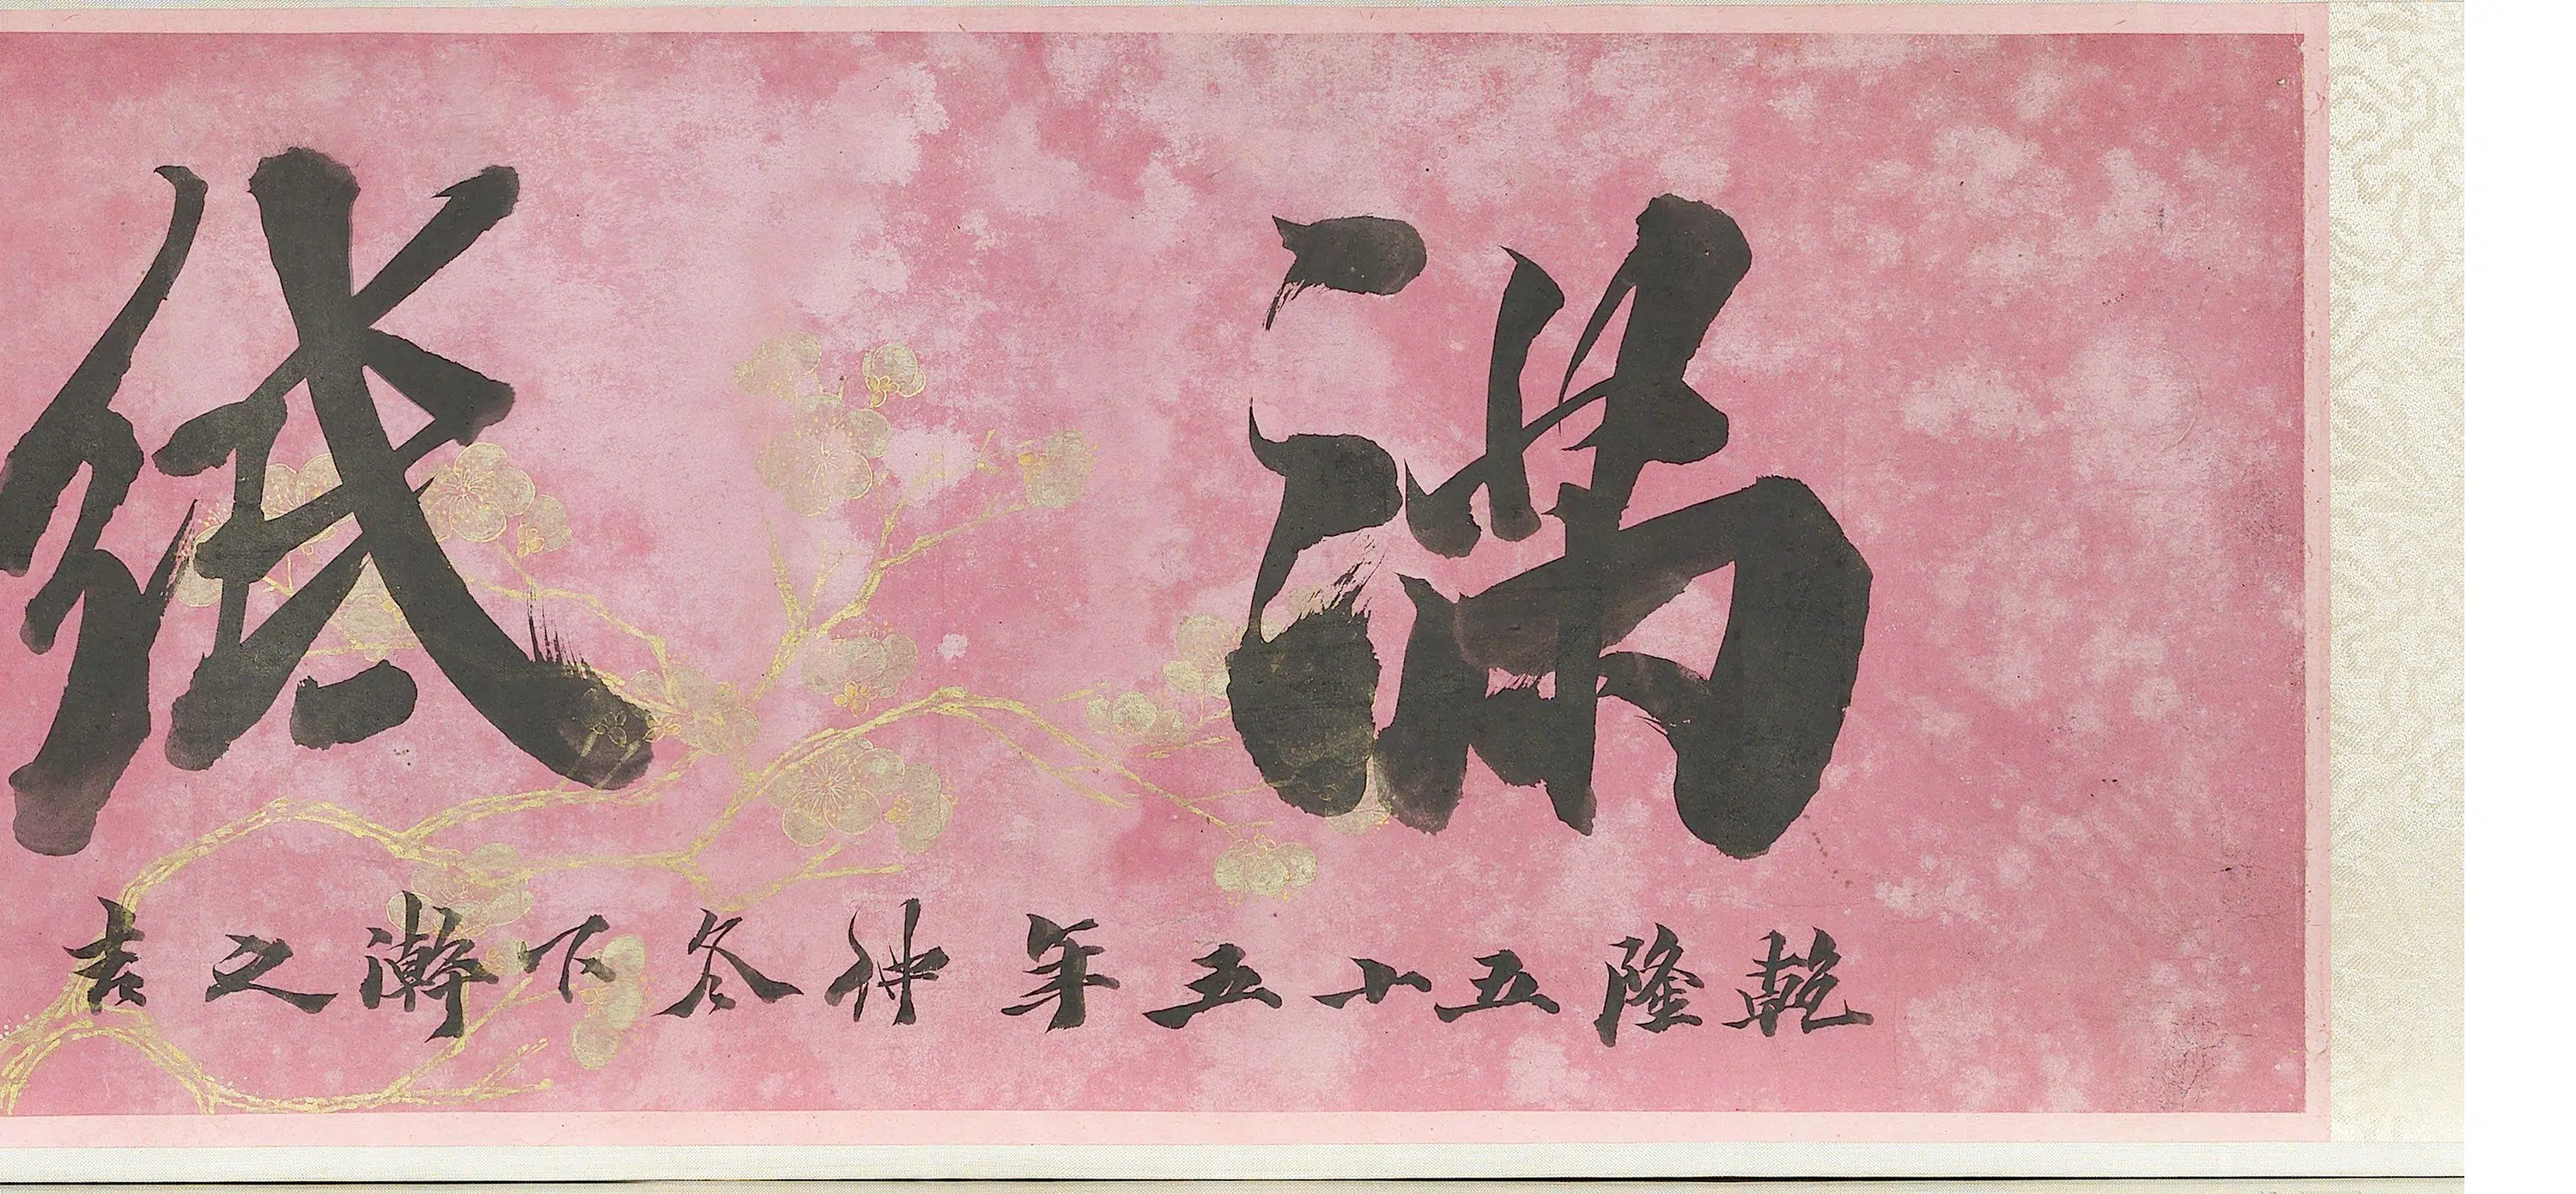 滿紙
乾隆五十五年仲冬下澣之吉